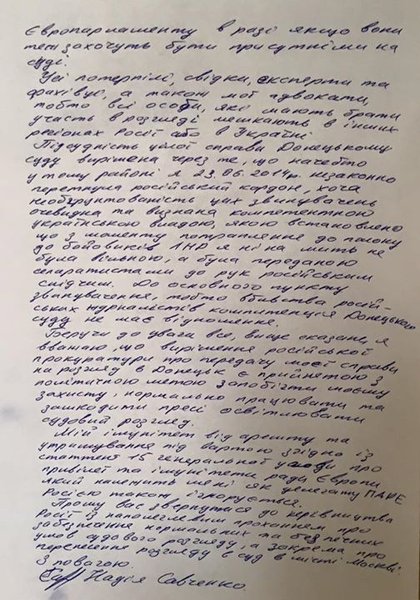 Європарламенту в разі якщо вони
теж захочуть бути присутніми на
суді.
Усі потерпілі, свідки, експерти та
фахівці, а також мої адвокати,
тобто всі особи, які мають брати
участь в розгляді мешкають в інших
регіонах Росії або в Україні
Підсудність цілої справи Донецькому
суду вирішена через те, що начебто
у тому районі я 23.06.2014р. незаконно
перетнула російський кордон, хоча
необґрунтованість цих звинувачень
очевидна та визнана компетентною
українською владою, якою встановлено
що з моменту потрапляння до полону
до бойовиків ЛНР я ні на мить не
була вільною, а була переданою
сепаратистами до рук російським
слідчим. До основного пункту
звинувачення, тобто вбивства росій-
ських журналістів компетенція Донецького
суду не має відношення.
Беручи до уваги все, вище сказане, я
вважаю, що вирішення російської
прокуратури про передачу моєї справи
на розгляд в Донецьк є прийнятою з
політичною метою запобігти моєму
захисту, нормально працювати та
зашкодити пресі освітлювати
судовий розгляд.
Мій імунітет від арешту та
утримування під вартою згідно із
статтею 15 генеральної угоди про
привілеї та імунітети ради Європи
який належить мені як делегату ПАРЄ
Росією також ігнорується.
Прошу вас звернутися до керівництва
Росії із наполегливим проханням про
забезпечення нормальних та безпечних
умов судового розгляду, а зокрема про
перенесення розгляду в суд в місті Москві
З повагою
Надія Савченко